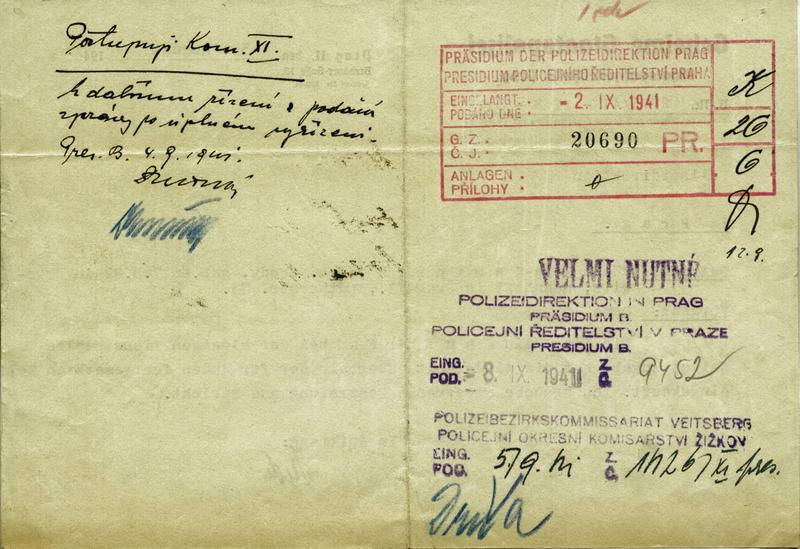 Postupuji Kom. XI.
k dalšímu řízení a podání
zprávy po úplném vyřízení.
Pres. B. 4. 9. 1941.
PRÄSIDIUM DER POLIZEIDIREKTION PRAG
PRESIDIUM POLICEJNÍHO ŘEDITELSTVÍ PRAHA
EINGELANGT:
PODÁNO DNE:
- 2. IX. 1941
G. Z.:
Č. J.:
20690 PR.
ANLAGEN:
PŘÍLOHY:
K
26
6
12. 9.
VELMI NUTNÉ
POLIZEIDIREKTION IN PRAG
PRÄSIDIUM B.
POLICEJNÍ ŘEDITELSTVÍ V PRAZE
PRESIDIUM B.
EING.
POD.
- 8. IX. 1941
Z.
Č.
9452
POLIZEIBEZIRKSKOMMISSARIAT VEITSBERG
POLICEJNÍ OKRESNÍ KOMISAŘSTVÍ ŽIŽKOV
EING.
POD.
5/9.
Z.
Č.
pres.